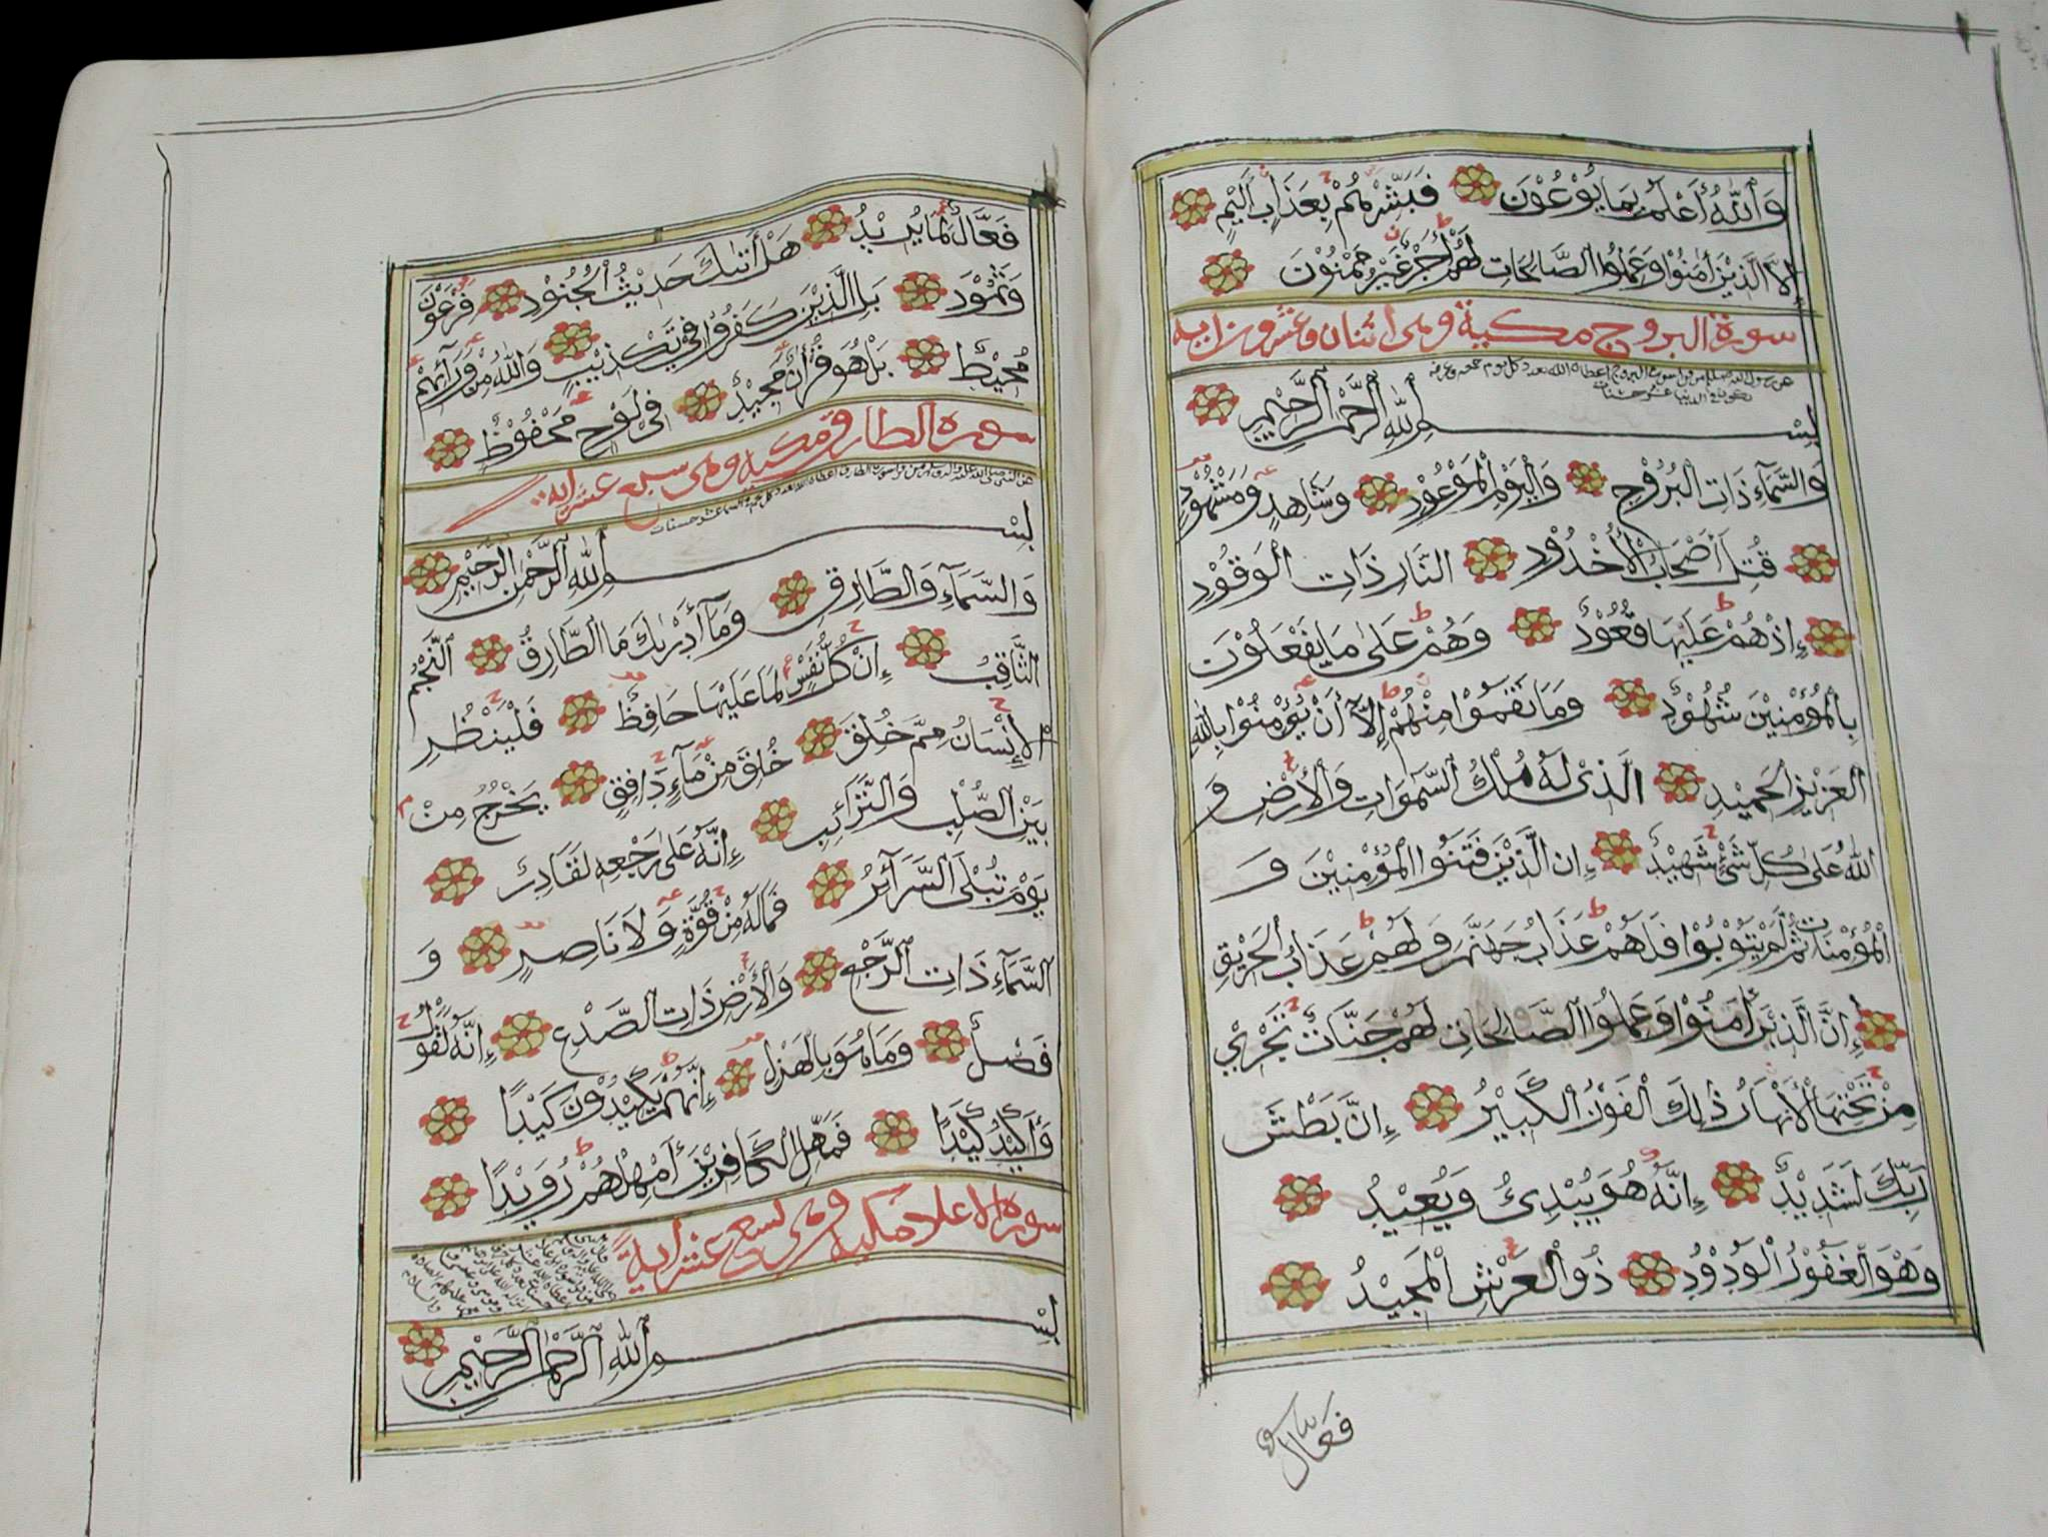 وَاللّٰهُ أَعْلَمُ بِمَا يُوْعُوْنَ فَبَشِّرْهُمْ بِعَذَابٍ أَلِيْمٍ
إِلَّا الَّذِيْنَ اٰمَنُوْا وَعَمِلُوا الصَّالِحَاتِ لَهُمْ أَجْرٌ غَيْرُ مَمْنُوْنَ
سورة البروج مكية وهى اثنان وعشرون اية
بِسْمِ اللّٰهِ الرَّحْمٰنِ الرَّحِيْمِ
وَالسَّمَآءِ ذَاتِ الْبُرُوْجِ وَالْيَوْمِ الْمَوْعُوْدِ وَشَاهِدٍ وَمَشْهُوْدٍ
قُتِلَ أَصْحَابُ الْأُخْدُوْدِ النَّارِ ذَاتِ الْوَقُوْدِ
إِذْ هُمْ عَلَيْهَا قُعُوْدٌ وَهُمْ عَلٰى مَا يَفْعَلُوْنَ
بِالْمُؤْمِنِيْنَ شُهُوْدٌ وَمَا نَقَمُوْا مِنْهُمْ إِلَّآ أَنْ يُؤْمِنُوْا بِاللّٰهِ
الْعَزِيْزِ الْحَمِيْدِ الَّذِىْ لَهُ مُلْكُ السَّمٰوَاتِ وَالْأَرْضِ وَ
اللّٰهُ عَلٰى كُلِّ شَىْءٍ شَهِيْدٌ إِنَّ الَّذِيْنَ فَتَنُوا الْمُؤْمِنِيْنَ وَ
الْمُؤْمِنَاتِ ثُمَّ لَمْ يَتُوْبُوْا فَلَهُمْ عَذَابُ جَهَنَّمَ وَلَهُمْ عَذَابُ الْحَرِيْقِ
إِنَّ الَّذِيْنَ اٰمَنُوْا وَعَمِلُوا الصَّالِحَاتِ لَهُمْ جَنَّاتٌ تَجْرِيْ
مِنْ تَحْتِهَا الْأَنْهَارُ ذٰلِكَ الْفَوْزُ الْكَبِيْرُ إِنَّ بَطْشَ
رَبِّكَ لَشَدِيْدٌ إِنَّهُ هُوَ يُبْدِئُ وَيُعِيْدُ
وَهُوَ الْغَفُوْرُ الْوَدُوْدُ ذُو الْعَرْشِ الْمَجِيْدُ
فَعَّالٌ
فَعَّالٌ لِمَا يُرِيْدُ هَلْ أَتٰىكَ حَدِيْثُ الْجُنُوْدِ فِرْعَوْنَ
وَثَمُوْدَ بَلِ الَّذِيْنَ كَفَرُوْا فِيْ تَكْذِيْبٍ وَاللّٰهُ مِنْ وَرَآئِهِمْ
مُحِيْطٌ بَلْ هُوَ قُرْاٰنٌ مَجِيْدٌ فِى لَوْحٍ مَحْفُوْظٍ
سورة الطارق مكية وهى سبع عشر اية
بِسْمِ اللّٰهِ الرَّحْمٰنِ الرَّحِيْمِ
وَالسَّمَآءِ وَالطَّارِقِ وَمَآ أَدْرٰىكَ مَا الطَّارِقُ النَّجْمُ
الثَّاقِبُ إِنْ كُلُّ نَفْسٍ لَمَّا عَلَيْهَا حَافِظٌ فَلْيَنْظُرِ
الْإِنْسَانُ مِمَّ خُلِقَ خُلِقَ مِنْ مَآءٍ دَافِقٍ يَخْرُجُ مِنْ
بَيْنِ الصُّلْبِ وَالتَّرَآئِبِ إِنَّهُ عَلٰى رَجْعِهِ لَقَادِرٌ
يَوْمَ تُبْلَى السَّرَآئِرُ فَمَالَهُ مِنْ قُوَّةٍ وَلَا نَاصِرٍ وَ
السَّمَآءِ ذَاتِ الرَّجْعِ وَالْأَرْضِ ذَاتِ الصَّدْعِ إِنَّهُ لَقَوْلٌ
فَصْلٌ وَمَا هُوَ بِالْهَزْلِ إِنَّهُمْ يَكِيْدُوْنَ كَيْدًا
وَأَكِيْدُ كَيْدًا فَمَهِّلِ الْكَافِرِيْنَ أَمْهِلْهُمْ رُوَيْدًا
سورة الاعلا مكية وهى تسع عشر اية
بِسْمِ اللّٰهِ الرَّحْمٰنِ الرَّحِيْمِ